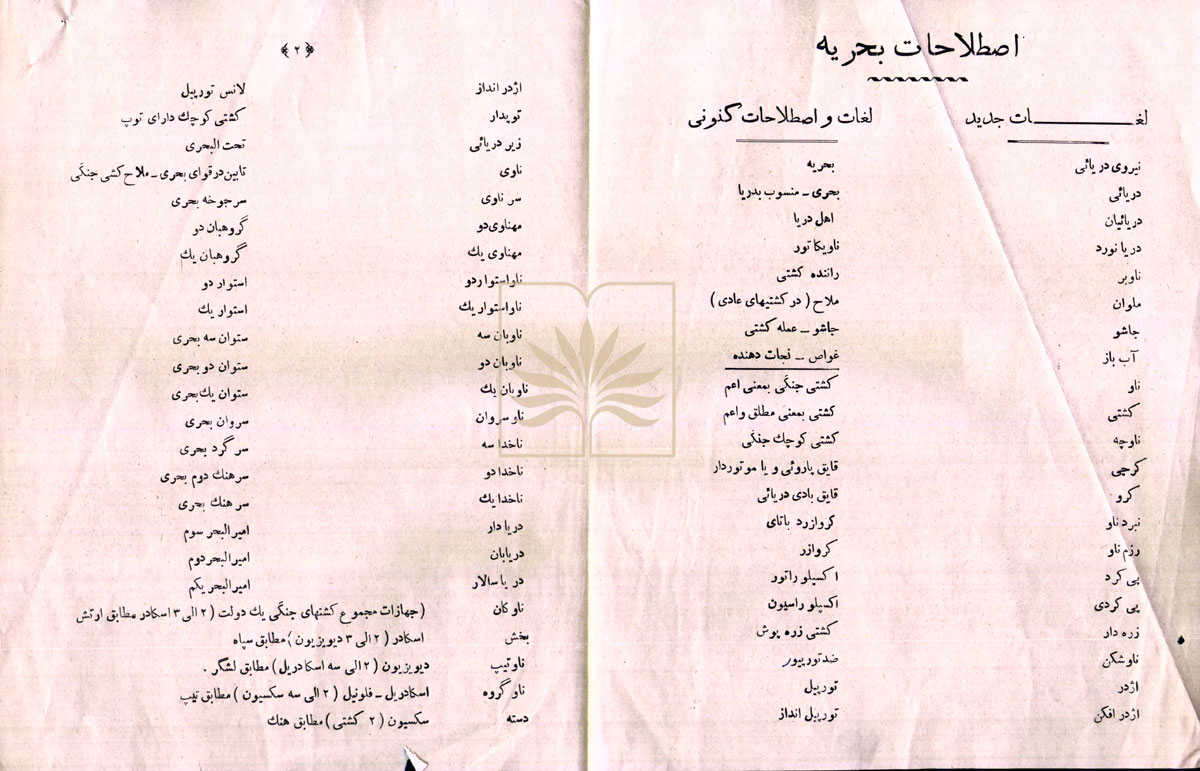 اصطلاحات بحریه
لغـــــات جدید    لغات و اصطلاحات کنونی
نیروی دریائی    بحریه
دریائی    بحری ـ منسوب بدریا
دریائیان    اهل دریا
دریا نورد    ناویکا تور
ناوبر    راننده کشتی
ملوان    ملاح ( در کشتیهای عادی )
جاشو    جاشو ـ عمله کشتی
آب باز    غواص ـ نجات دهنده
ناو    کشتی جنگی بمعنی اعم
کشتی    کشتی بمعنی مطلق واعم
ناوچه    کشتی کوچك جنگی
کرجی    قایق پاروئی و یا موتوردار
کرو    قایق بادی دریائی
نبرد ناو    کروازرد باتای
رزم ناو    کروازر
پی کرد    اکسپلو راتور
پی کردی    اکسپلو راسیون
زره دار    کشتی زره پوش
ناوشکن    ضد تورپیور
اژدر    تورپیل
اژدر افکن    تورپیل انداز
﴿ ۲ ﴾
اژدر انداز    لانس تورپیل
توپدار    کشتی کوچك دارای توپ
زیر دریائی    تحت البحری
ناوی    تابین در قوای بحری ـ ملاح کشی جنگی
سر ناوی    سر جوخه بحری
مهناوی دو    گروهبان دو
مهناوی یك    گروهبان یك
ناو استوار دو    استوار دو
ناو استوار یك    استوار یك
ناوبان سه    ستوان سه بحری
ناوبان دو    ستوان دو بحری
ناوبان یك    ستوان یك بحری
ناو سروان    سروان بحری
ناخدا سه    سر گرد بحری
ناخدا دو    سر هنك دوم بحری
ناخدا یك    سر هنك بحری
دریا دار    امیر البحر سوم
دریابان    امیر البحر دوم
دریا سالار    امیر البحر یکم
ناوکان    ( جهازات مجموع کشتهای جنگی یك دولت ( ۲ الی ۳ اسکادر مطابق ارتش
بخش    اسکادر ( ۲ الی ۳ دیویزیون ) مطابق سپاه
ناوتیپ    دیویزیون ( ۲ الی سه اسکادریل ) مطابق لشگر .
ناو گروه    اسکادریل ـ فلوتیل ( ۲ الی سه سکسیون ) مطابق تیپ
دسته    سکسیون ( ۲ کشتی ) مطابق هنك